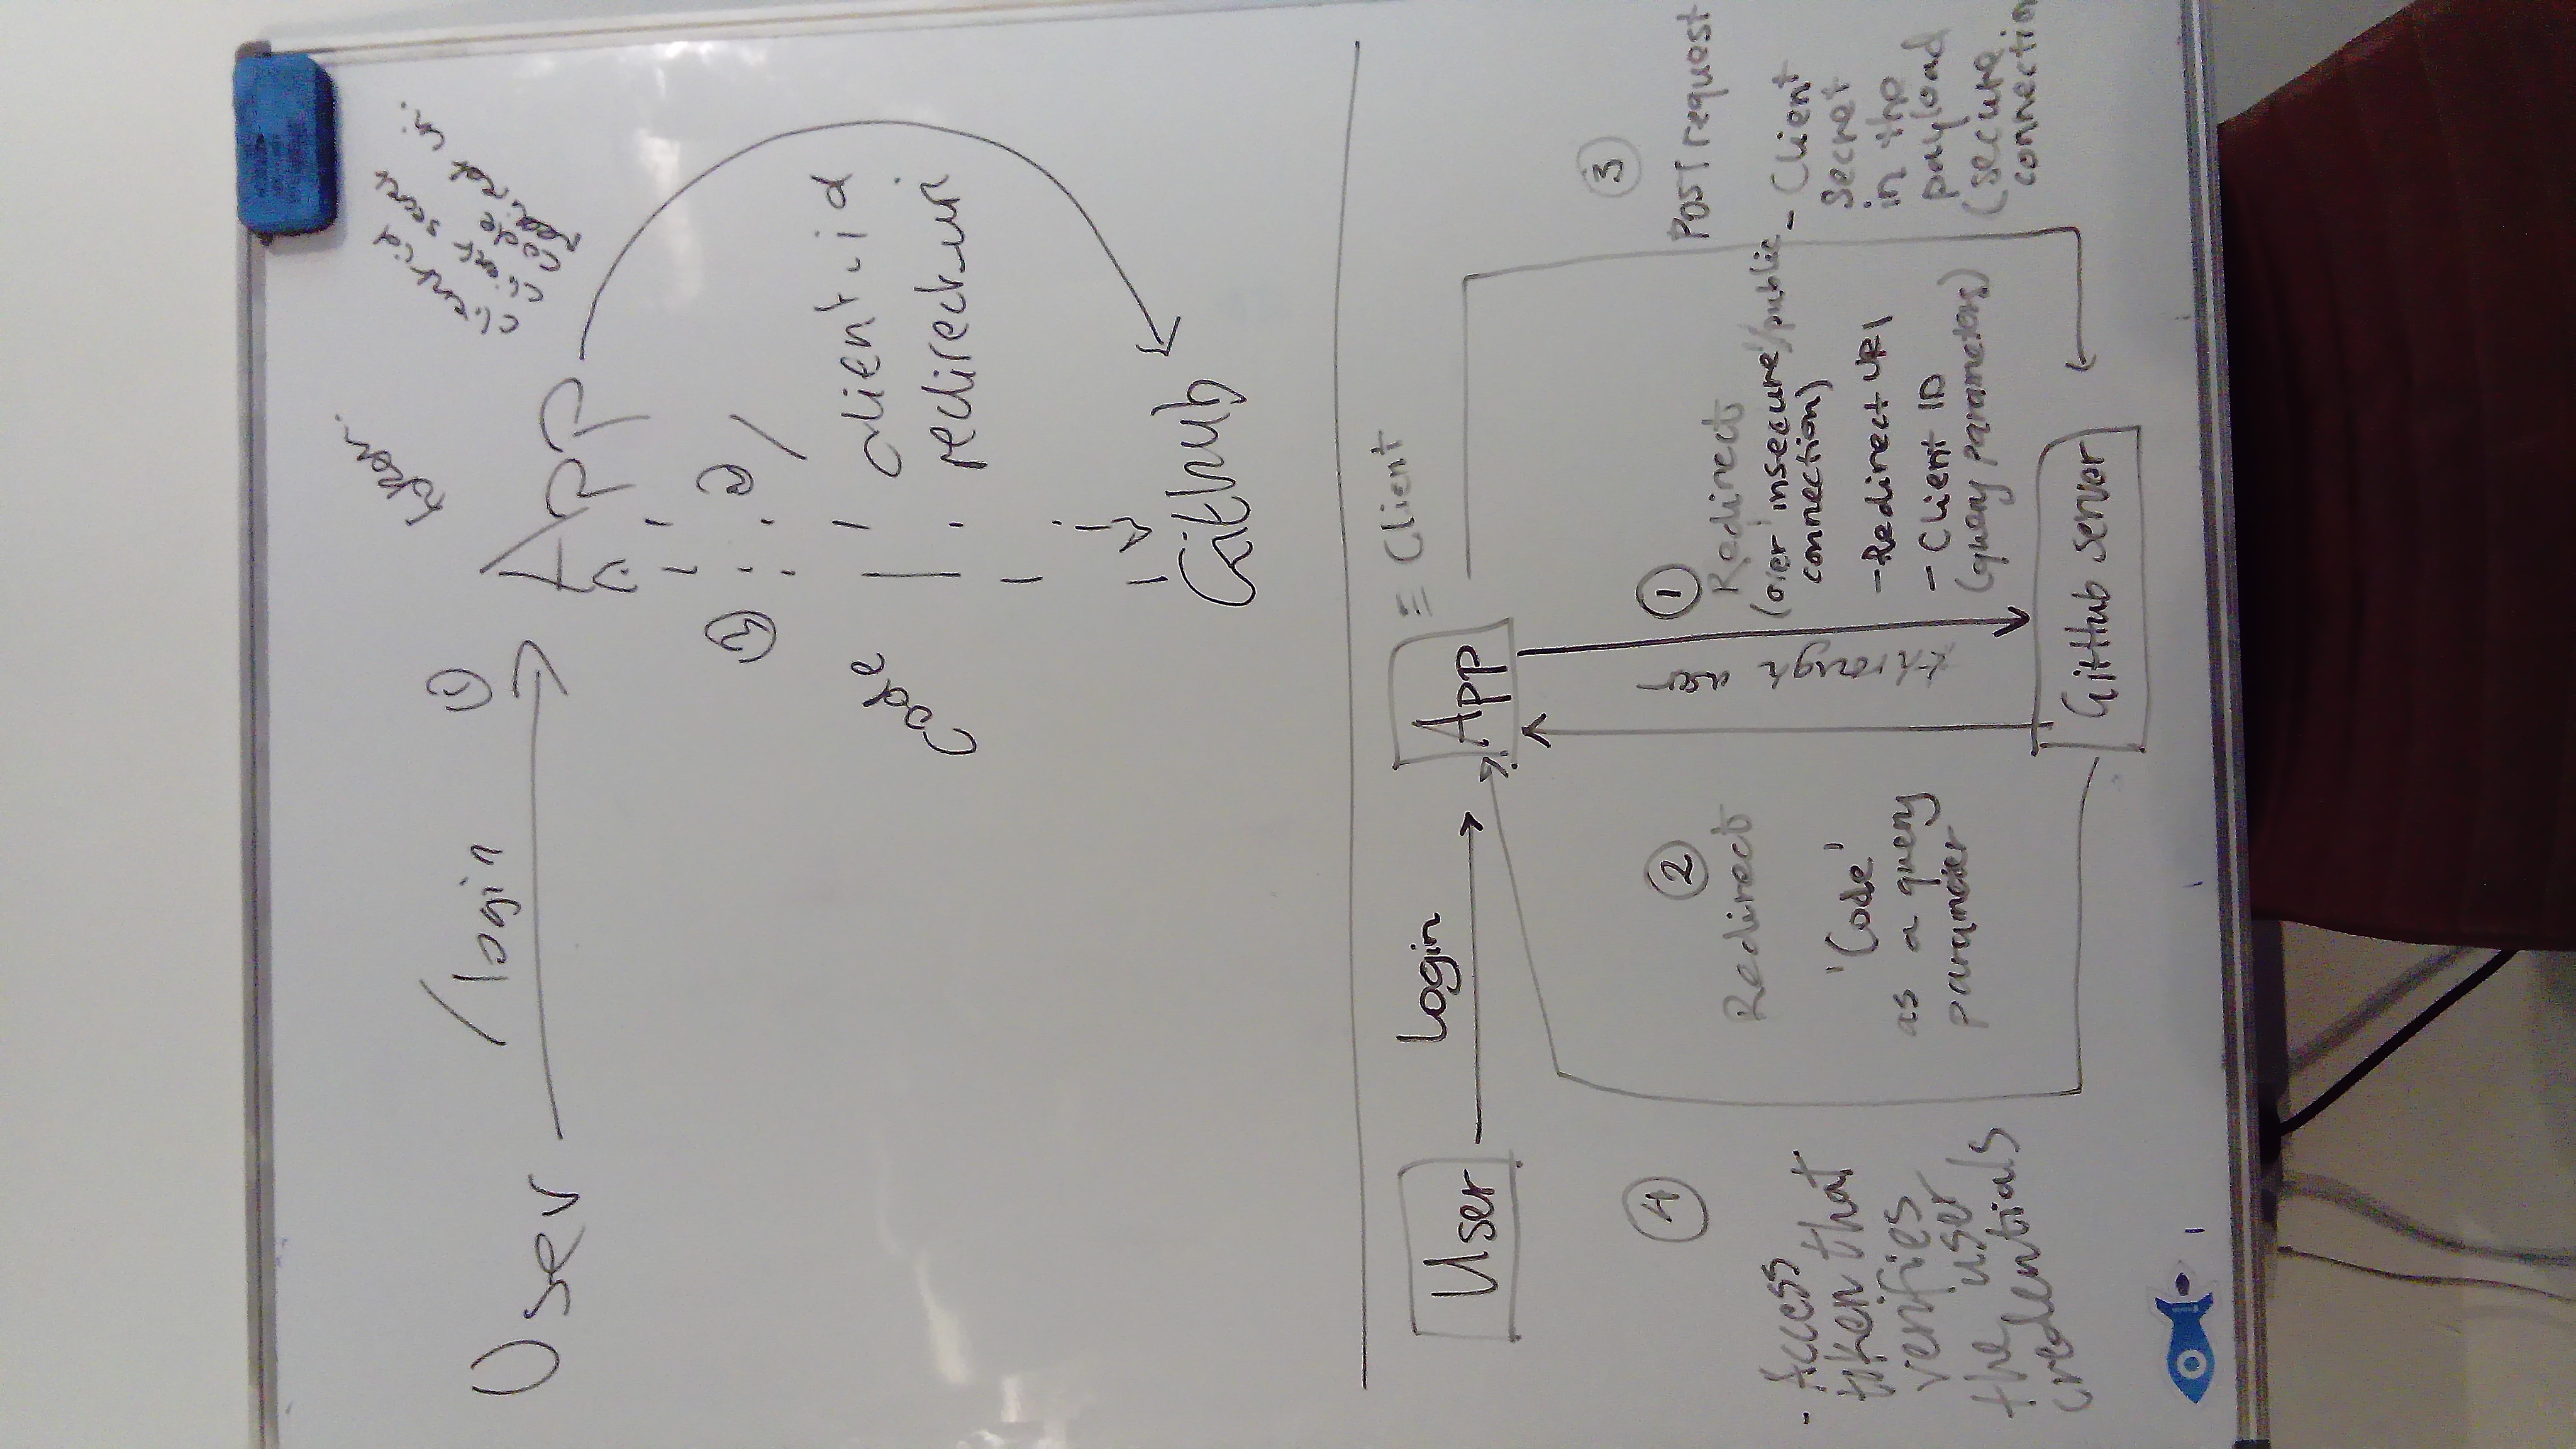 User
/login
①
App
token.
client id
client secret
code
redirect uri.
③
②
/
code
client_id
redirect_uri
Github
User
Login
App
≡ Client
④
- Access
token that
verifies
the user
credentials
②
Redirect
'Code'
as a query
parameter
through user
①
Redirect
(over 'insecure'/public
connection)
- Redirect URI
- Client ID
(query parameters)
③
POST request
- Client
secret
in the
payload
(secure
connection
GitHub server